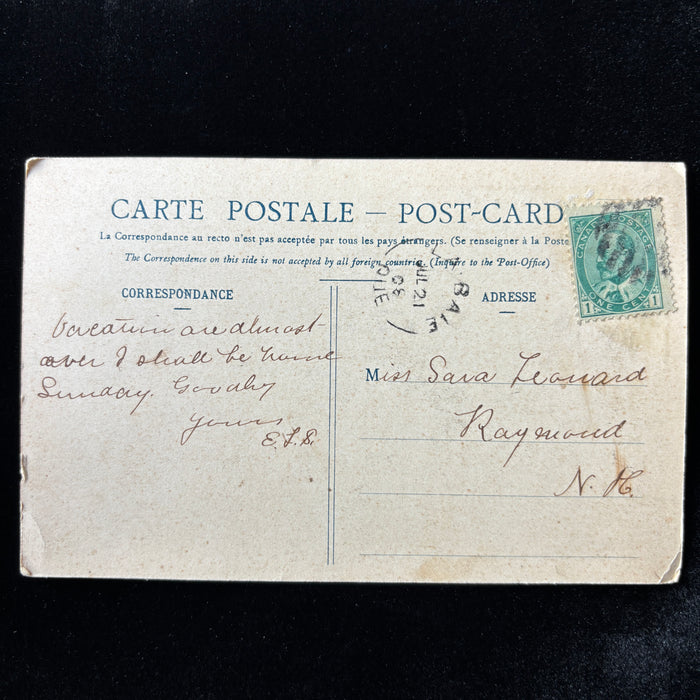 CARTE POSTALE — POST-CARD
La Correspondance au recto n'est pas acceptée par tous les pays étrangers. (Se renseigner à la Poste
The Correspondence on this side is not accepted by all foreign countries. (Inquire to the Post-Office)
CORRESPONDANCE
ADRESSE
BAIE
JUL 21
08
QUE
CANADA POSTAGE
1 ONE CENT 1
Vacation are almost
over I shall be home
Sunday. Goodby
Yours
E.L.S.
Miss Sara Leonard
Raymond
N. H.